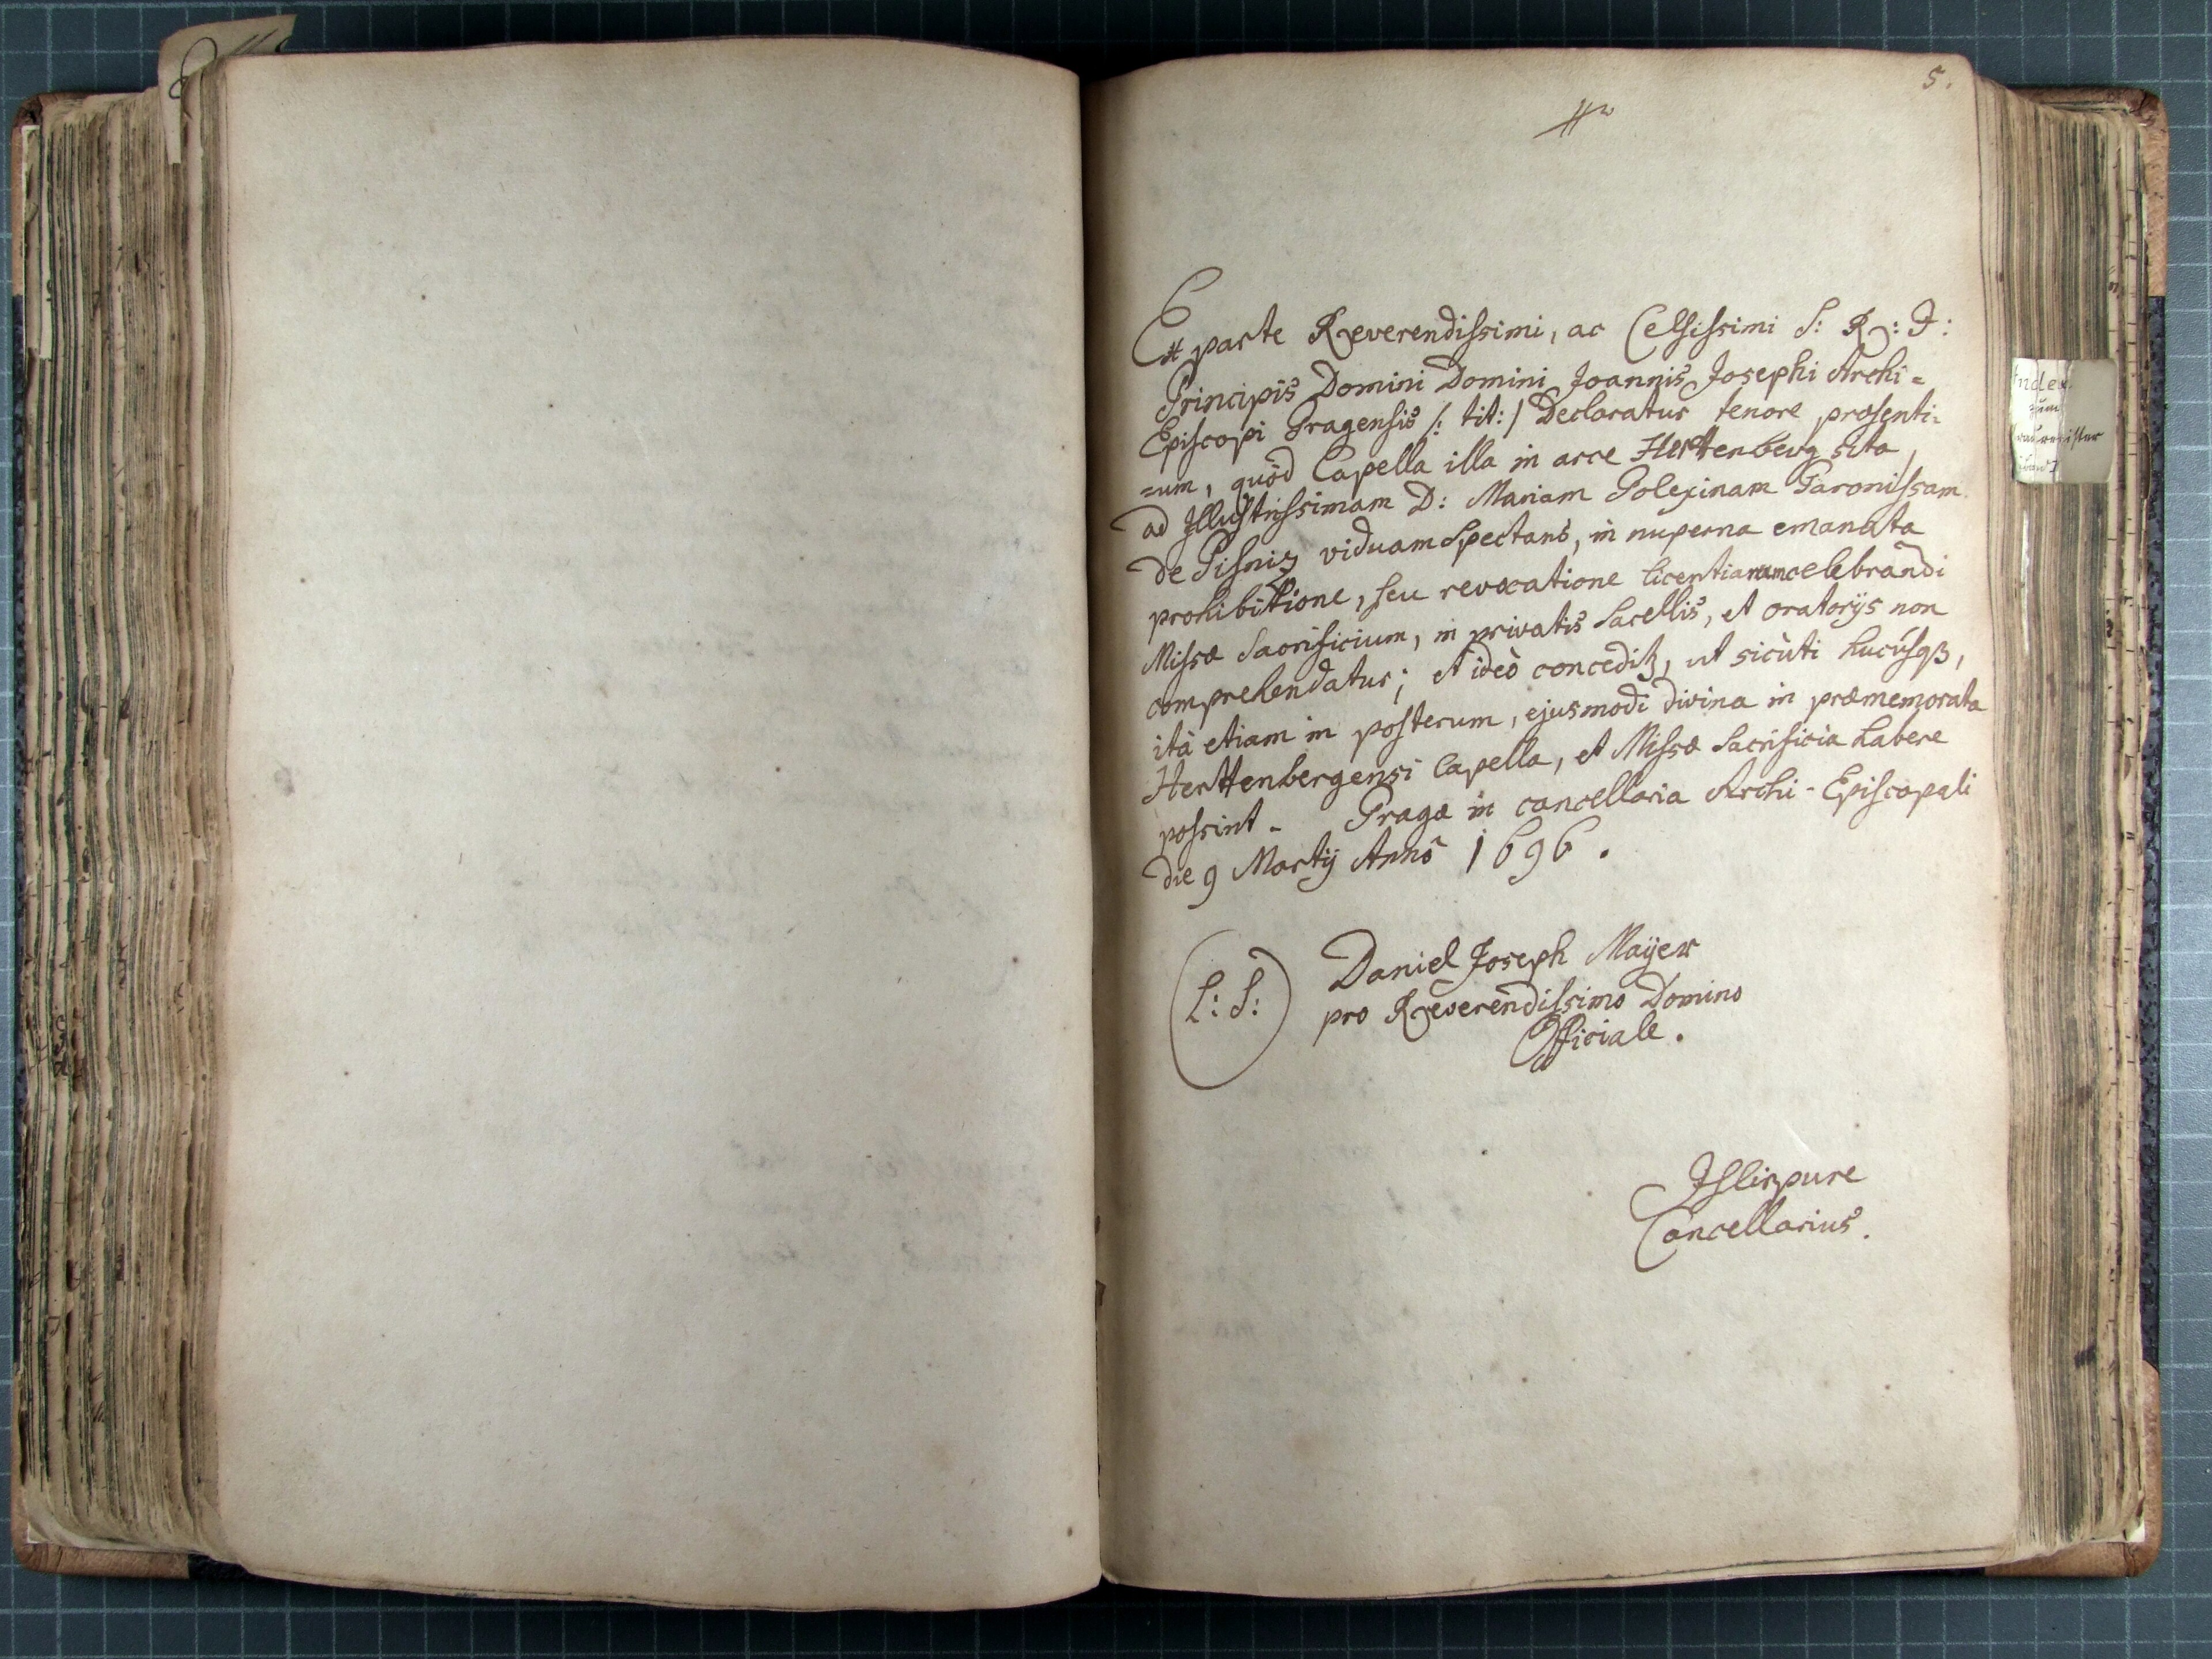 5.
Ex parte Reverendissimi, ac Celsissimi S: R: I:
Principis Domini Domini Joannis Josephi Archi=
Episcopi Pragensis /: tit: / Declaratur tenore præsenti=
=um, quòd Capella illa in arce Herttenberg sita,
ad Illustrissimam D: Mariam Polexinam Baronissam
de Pisniz viduam Spectans, in nuperna emanata
prohibitione, seu revocatione licentiarum celebrandi
Missæ Sacrificium, in privatis Sacellis, et oratorijs non
comprehendatur; et ideò conceditur, ut sicùti hucùsqꝫ,
ità etiam in posterum, ejusmodi divina in præmemorata
Herttenbergensi Capella, et Missæ Sacrificia habere
possint. Pragæ in cancellaria Archi-Episcopali
die 9 Martij Annô 1696.
(L: S:) Daniel Joseph Maÿer
pro Reverendissimo Domino
Officiale.
Cancellarius.
Index
zum